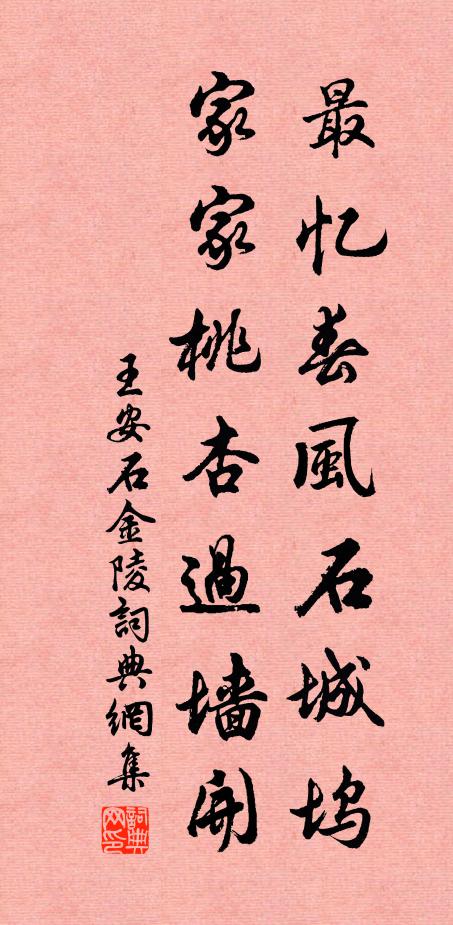 最忆春風石城坞
家家桃杏過墙開
王安石金陵詞典網集
詞典网印